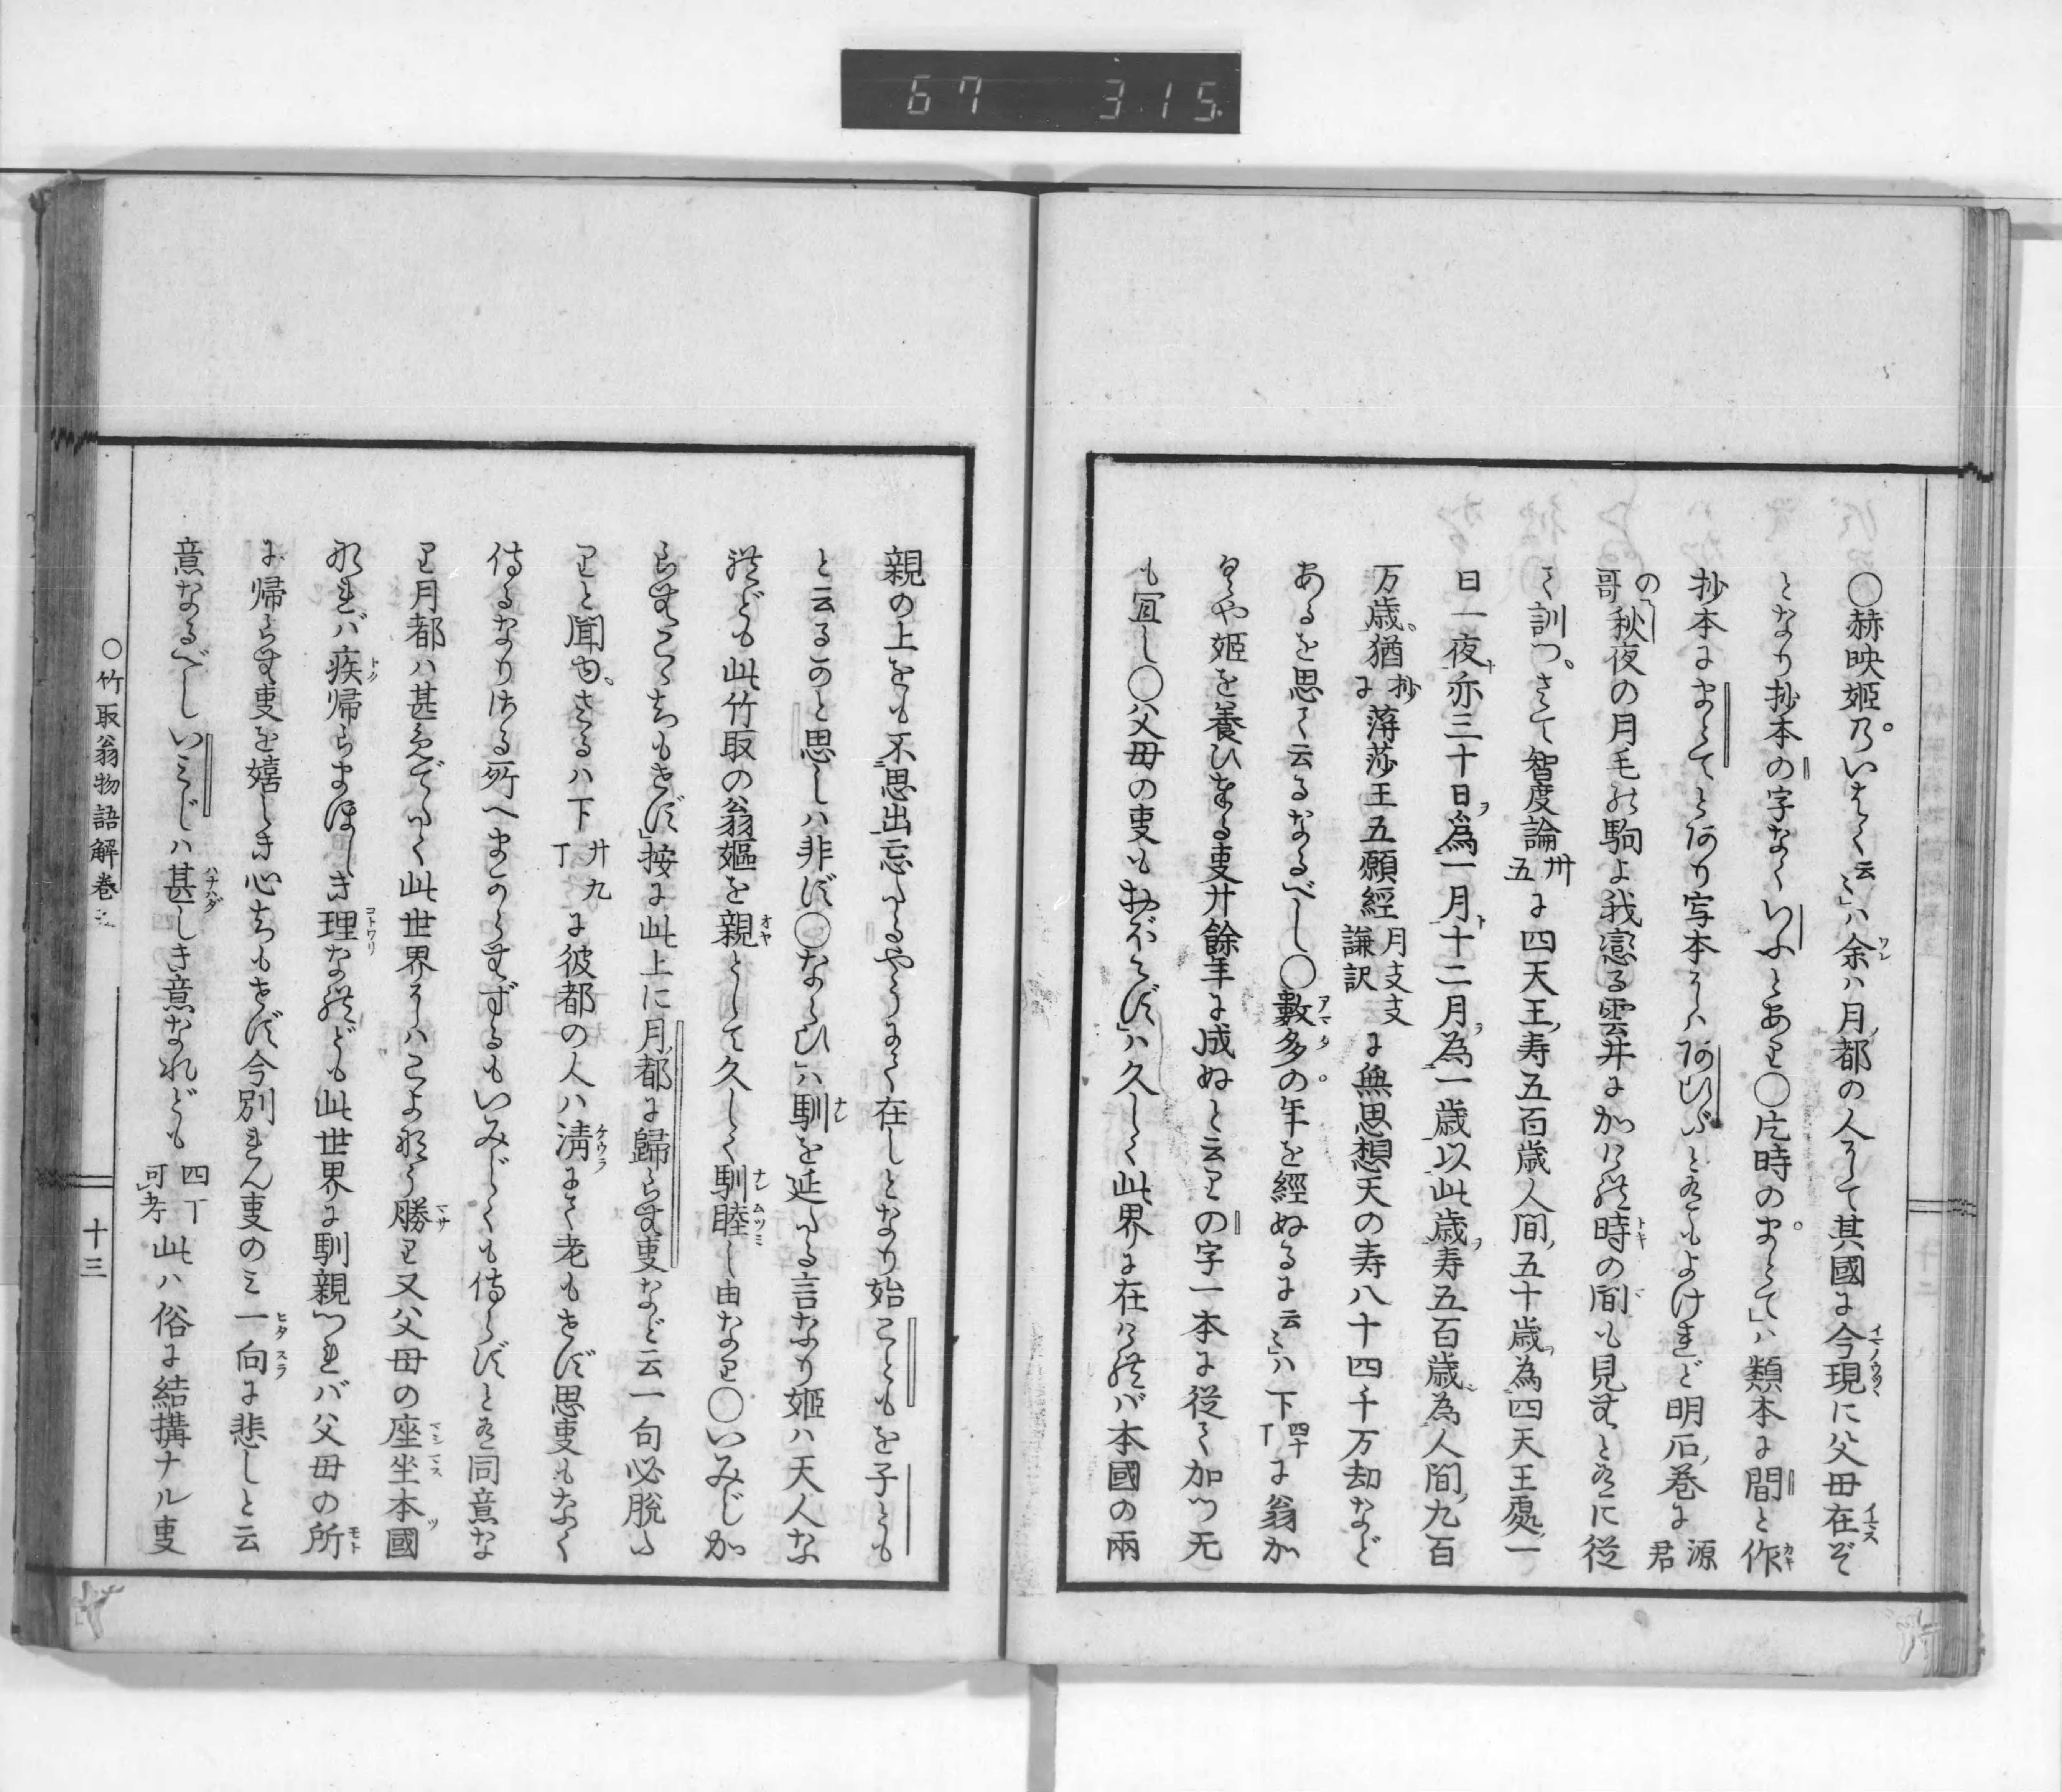 67 315.
○赫映姫乃いはく云々」ハ余ハ月ノ都の人にて其國に今現に父母在ぞ
となり抄本の字なくいふとあり○片時のまとて」ハ類本に間と作
抄本にまてとあり写本にハあひだと有もよけれど明石ノ巻に源君
の哥秋ノ夜の月毛の駒よ我恋る雲井にかけれ時の間も見むと有に従
て訓つさて智度論卅五に四天王ノ寿五百歳人間ノ五十歳ヲ為四天王處ノ一
日一夜ト亦三十日ヲ爲一月ト十二月ヲ為一歳以此歳ヲ寿五百歳為人間ノ九百
万歳猶抄に蓱莎王五願經月支支謙訳に無思想天の寿八十四千万劫など
あるを思て云るなるべし○數多の年を經ぬるに云々」ハ下四十丁に翁か
くや姫を養ひまる叓廾餘年に成ぬと云りの字一本に従て加つ无
も宜し○父母の叓もおぼえず」ハ久しく此界に在けれバ本國の兩
親の上をも不思出忘たるやうにて在しとなり始こともを子とも
と云るかと思しハ非ず○ならひ」ハ馴を延たる言なり姫ハ天人な
れども此竹取の翁嫗を親として久しく馴睦し由なり○いみじか
らむこゝちもせず」按に此上に月ノ都に歸らむ叓など云一句必脱た
りと聞ゆさるハ下廾九丁に彼都の人ハ淸にて老もせず思叓もなく
侍るなりける所へまからむずるもいみじくも侍らずと有同意な
り月ノ都ハ甚めでたく此世界にハこよなう勝り又父母の座坐本ツ國
なれバ疾帰らまほしき理なれども此世界に馴親つれバ父母の所
に帰らむ叓を嬉しき心ちもせず今別れん叓のミ一向に悲しと云
意なるべしいミじハ甚しき意なれども四丁可考此ハ俗に結搆ナル叓
○竹取翁物語解巻五 十三